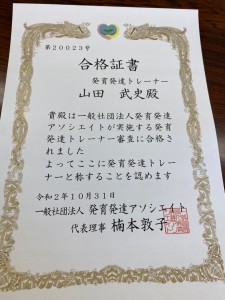 第20023号
合格証書
発育発達トレーナー
山田 武史殿
貴殿は一般社団法人発育発達
アソシエイトが実施する発育
発達トレーナー審査に合格さ
れました
よってここに発育発達トレー
ナーと称することを認めます
令和2年10月31日
一般社団法人 発育発達アソシエイト
代表理事 楠本敦子